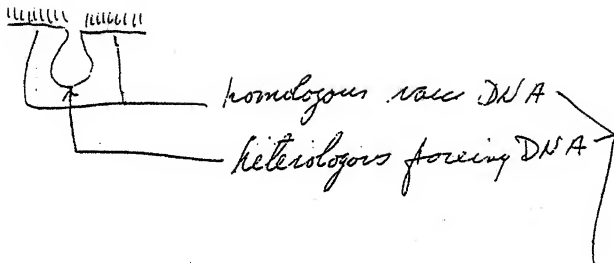 homologous DNA
heterologous foreing DNA